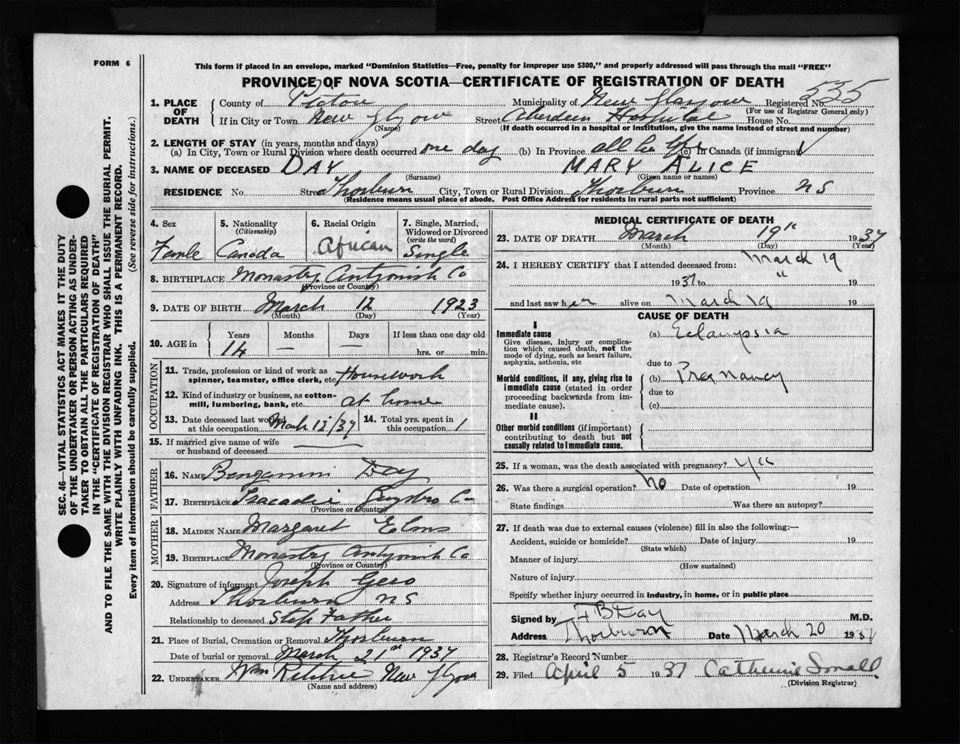 FORM 6
This form if placed in an envelope, marked "Dominion Statistics—Free, penalty for improper use $300," and properly addressed will pass through the mail "FREE"
PROVINCE OF NOVA SCOTIA—CERTIFICATE OF REGISTRATION OF DEATH
535
1. PLACE OF DEATH
County of Pictou Municipality of New Glasgow Registered No.
(For use of Registrar General only)
If in City or Town New Glgow Street Aberdeen Hospital House No.
(Name) (If death occurred in a hospital or institution, give the name instead of street and number)
2. LENGTH OF STAY (in years, months and days)
(a) In City, Town or Rural Division where death occurred one day (b) In Province all her life (c) In Canada (if immigrant)
3. NAME OF DECEASED DAY MARY ALICE
(Surname) (Given name or names)
RESIDENCE No. Street Thorburn City, Town or Rural Division Thorburn Province NS
(Residence means usual place of abode. Post Office Address for residents in rural parts not sufficient)
SEC. 46—VITAL STATISTICS ACT MAKES IT THE DUTY
OF THE UNDERTAKER OR PERSON ACTING AS UNDER-
TAKER TO OBTAIN ALL THE PARTICULARS REQUIRED
IN THE "CERTIFICATE OF REGISTRATION OF DEATH"
AND TO FILE THE SAME WITH THE DIVISION REGISTRAR WHO SHALL ISSUE THE BURIAL PERMIT.
WRITE PLAINLY WITH UNFADING INK. THIS IS A PERMANENT RECORD.
Every item of information should be carefully supplied. (See reverse side for instructions.)
4. Sex
Female
5. Nationality
(Citizenship)
Canada
6. Racial Origin
African
7. Single, Married, Widowed or Divorced
(write the word)
Single
8. BIRTHPLACE Monastry Antgonish Co
(Province or Country)
9. DATE OF BIRTH March 12 1923
(Month) (Day) (Year)
10. AGE in
Years Months Days If less than one day old
14 — — hrs. or min.
OCCUPATION
11. Trade, profession or kind of work as
spinner, teamster, office clerk, etc. Housework
12. Kind of industry or business, as cotton-
mill, lumbering, bank, etc. at home
13. Date deceased last worked
at this occupation
14. Total yrs. spent in
this occupation 1
15. If married give name of wife
or husband of deceased
FATHER
16. NAME Benjamin Day
17. BIRTHPLACE Tracadie Guysbro Co
(Province or Country)
MOTHER
18. MAIDEN NAME Margaret
19. BIRTHPLACE Monastry Antgonish Co
(Province or Country)
20. Signature of informant Joseph Gero
Address Thorburn NS
Relationship to deceased Step Father
21. Place of Burial, Cremation or Removal Thorburn
Date of burial or removal March 21st 1937
22. UNDERTAKER New Glgow
(Name and address)
MEDICAL CERTIFICATE OF DEATH
23. DATE OF DEATH March 19th 1937
(Month) (Day) (Year)
24. I HEREBY CERTIFY that I attended deceased from: March 19
1937 to " 19
and last saw her alive on March 19 19
CAUSE OF DEATH
I
Immediate cause
Give disease, injury or complica-
tion which caused death, not the
mode of dying, such as heart failure,
asphyxia, asthenia, etc
(a) Eclampsia
due to
Morbid conditions, if any, giving rise to
immediate cause (stated in order
proceeding backwards from im-
mediate cause).
(b) Pregnancy
due to
(c)
II
Other morbid conditions (if important)
contributing to death but not
causally related to immediate cause.
25. If a woman, was the death associated with pregnancy? Yes
26. Was there a surgical operation? No Date of operation 19
State findings Was there an autopsy?
27. If death was due to external causes (violence) fill in also the following:—
Accident, suicide or homicide? Date of injury 19
(State which)
Manner of injury
(How sustained)
Nature of injury
Specify whether injury occurred in industry, in home, or in public place
Signed by B Day M.D.
Address Thorburn Date March 20 1937
28. Registrar's Record Number
29. Filed April 5 1937 Catherine
(Division Registrar)